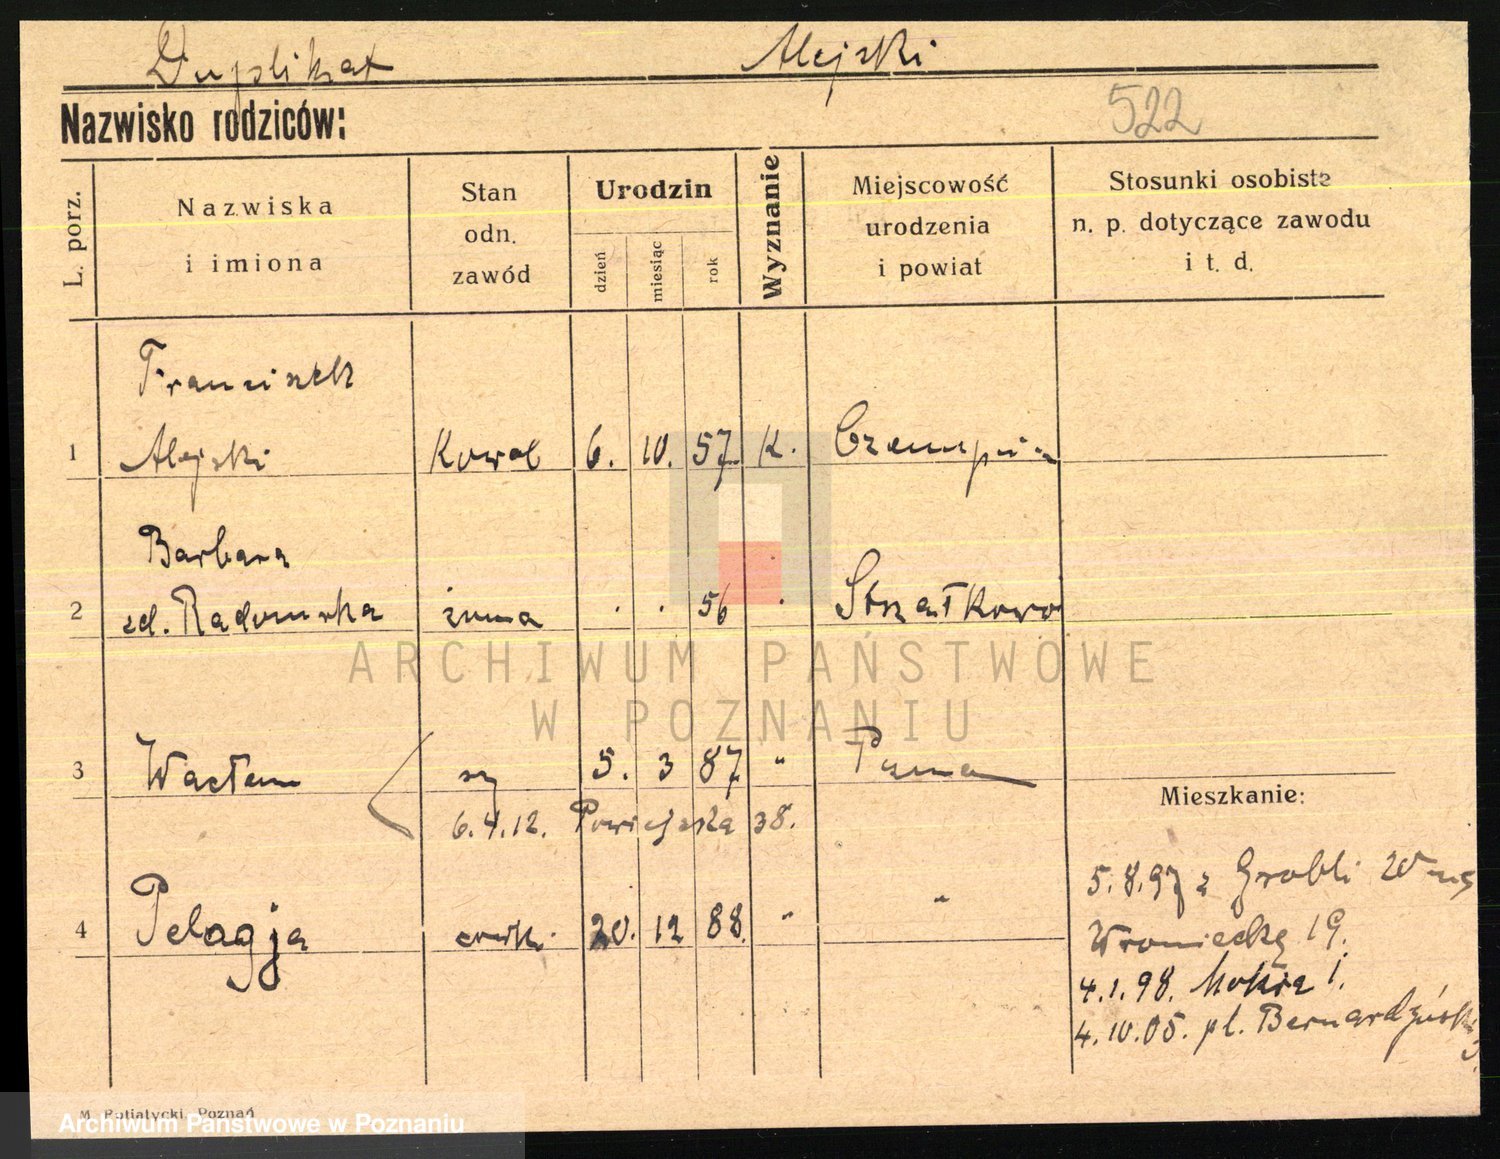 Duplikat Alejski
Nazwisko rodziców:
522
L. porz.
Nazwiska
i imiona
Stan
odn.
zawód
Urodzin
dzień
miesiąc
rok
Wyznanie
Miejscowość
urodzenia
i powiat
Stosunki osobiste
n. p. dotyczące zawodu
i t. d.
Franciszek
1 Alejski Kowal 6. 10. 57. K. Czempiń
Barbara
2 zd. Radomska żona . . 56 . Strzałkowo
ARCHIWUM PAŃSTWOWE
W POZNANIU
3 Wacław sy 5. 3 87 " Pznań
6.4.12. Powiejska 38.
4 Pelagja córk. 20. 12 88. " "
Mieszkanie:
5.8.97 z Grobli
Wroniecką 19.
4.1.98. Mokra 1.
4.10.05. pl. Bernardyński
3.
M. Putiatycki, Poznań
Archiwum Państwowe w Poznaniu